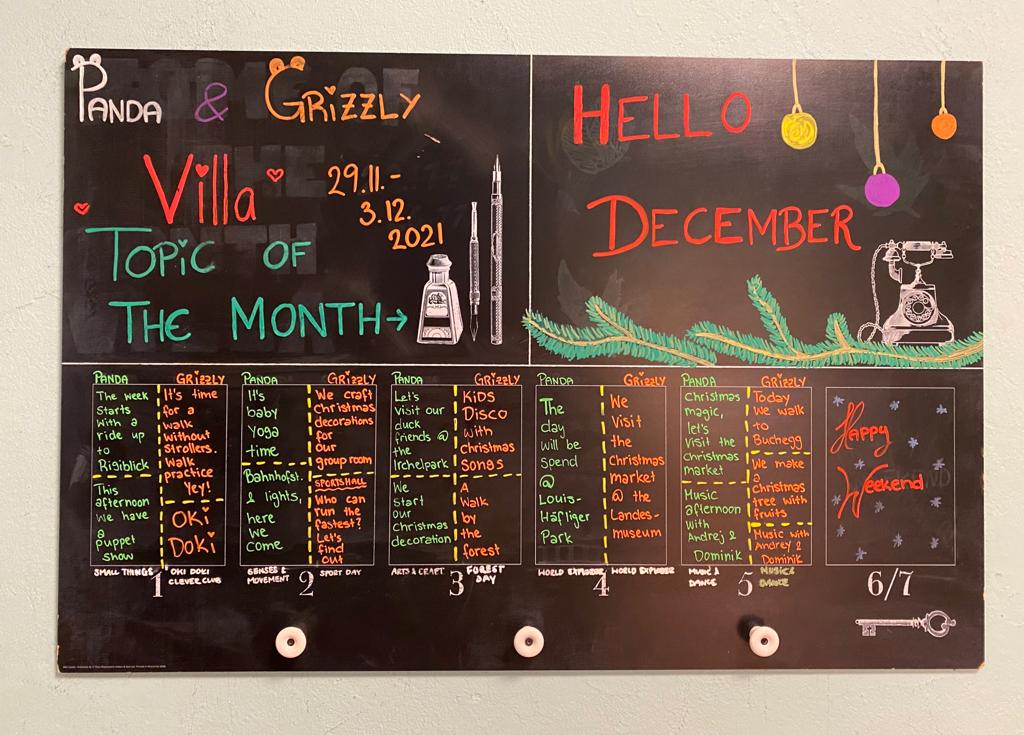 PANDA & GRIZZLY
Villa
29.11.-
3.12.
2021
TOPIC OF
THE MONTH→
HELLO
DECEMBER
PANDA
The week
Starts
With a
ride up
to
Rigiblick
This
afternoon
We have
a
puppet
show
SMALL THINGS
GRIZZLY
It's time
for a
walk
without
Strollers.
Walk
practice
Yey!
OKi
DoKi
OKI DOKI
CLEVER CLUB
1
PANDA
It's
baby
Yoga
time
Bahnhofst.
& lights,
here
we
come
SENSES &
MOVEMENT
GRIZZLY
We craft
Christmas
decorations
for
our
group room
SPORTSHALL
Who can
run the
fastest?
Let's
find
out
SPORT DAY
2
PANDA
Let's
visit our
duck
friends @
the
Irchelpark
We
start
our
Christmas
decoration
ARTS & CRAFT
GRIZZLY
KiDS
DISCO
with
Christmas
SONGS
A
Walk
by
the
forest
FOREST
DAY
3
PANDA
The
day
will be
Spend
@
Louis-
Häfliger
Park
WORLD EXPLORER
GRIZZLY
We
Visit
the
Christmas
market
@ the
Landes-
museum
WORLD EXPLORER
4
PANDA
Christmas
magic,
let's
Visit the
Christmas
market
Music
afternoon
With
Andrej &
Dominik
MUSIC &
DANCE
GRIZZLY
Today
we walk
to
Buchegg
We make
a
Christmas
tree with
fruits
Music with
Andrey &
Dominik
MUSIC &
DANCE
5
Happy
Weekend
6/7